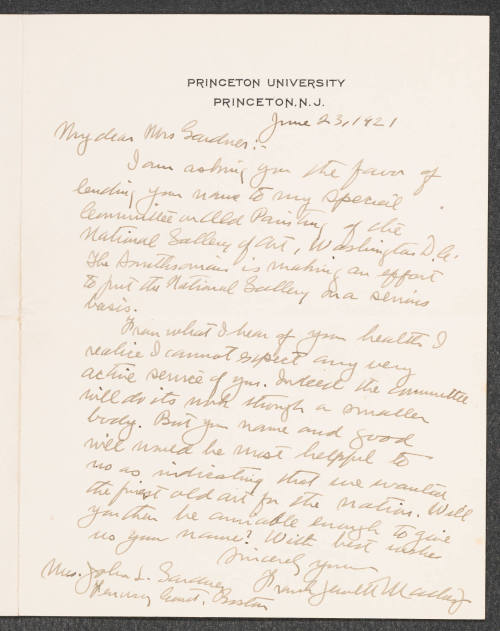 PRINCETON UNIVERSITY
PRINCETON, N. J.
June 23, 1921
My dear Mrs Gardner:-
I am asking you the favor of
lending your name to my special
Committee on Old Painting of the
National Gallery of Art, Washington D.C.
The Smithsonian is making an effort
to put the National Gallery on a serious
basis.
From what I hear of your health I
realize I cannot expect any very
active service of you. Indeed the committee
will do its work through a smaller
body. But your name and good
will would be most helpful to
us as indicating that we wanted
the finest old art for the nation. Will
you then be amiable enough to give
us your name? With best wishes
Sincerely yours
Frank Jewett Mather
Mrs. John L. Gardner
Fenway Court, Boston